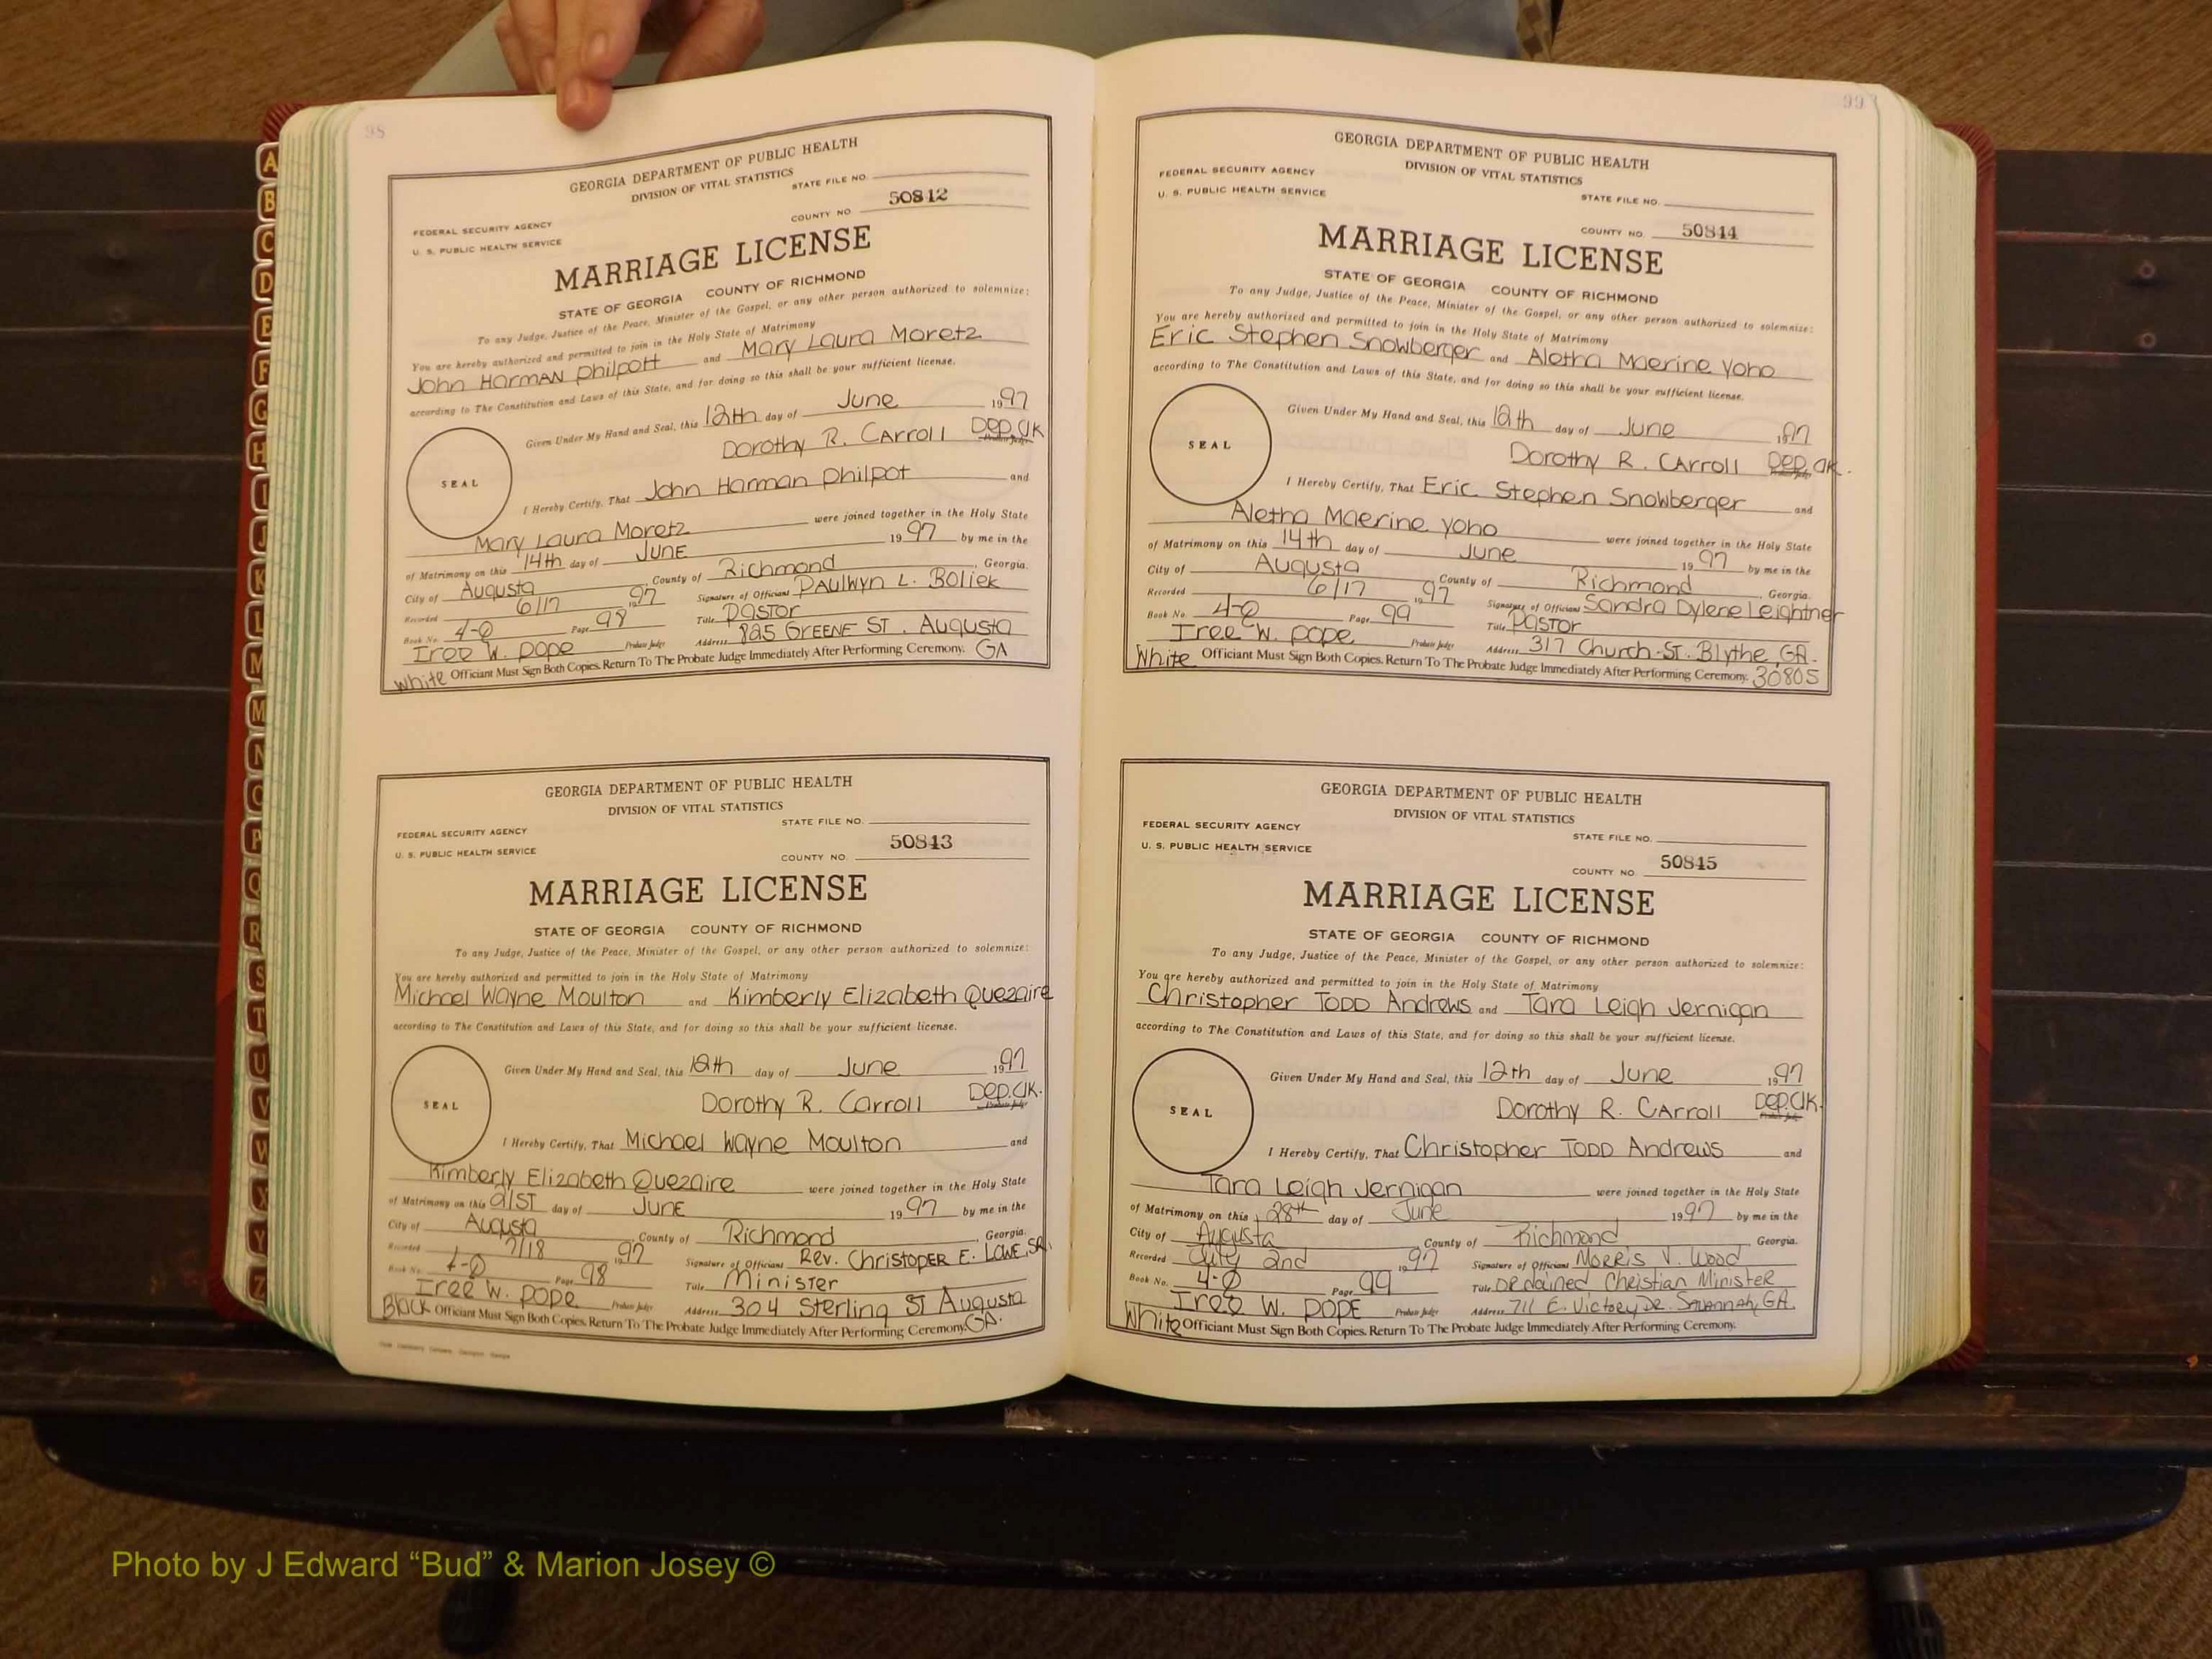 98
GEORGIA DEPARTMENT OF PUBLIC HEALTH
DIVISION OF VITAL STATISTICS
STATE FILE NO.
FEDERAL SECURITY AGENCY
U. S. PUBLIC HEALTH SERVICE
COUNTY NO. 50812
MARRIAGE LICENSE
STATE OF GEORGIA COUNTY OF RICHMOND
To any Judge, Justice of the Peace, Minister of the Gospel, or any other person authorized to solemnize:
You are hereby authorized and permitted to join in the Holy State of Matrimony
John Harman Philpott and Mary Laura Moretz
according to The Constitution and Laws of this State, and for doing so this shall be your sufficient license.
Given Under My Hand and Seal, this 12th day of June 1997
Dorothy R. Carroll Dep. Clk
SEAL
I Hereby Certify, That John Harman Philpot and
Mary Laura Moretz were joined together in the Holy State
of Matrimony on this 14th day of June 1997 by me in the
City of Augusta County of Richmond, Georgia.
Recorded 6/17 1997 Signature of Officiant Paulwyn L. Boliek
Book No. 4-Q Page 98 Title Pastor
Iree W. Pope Probate Judge Address 825 Greene St. Augusta
White Officiant Must Sign Both Copies. Return To The Probate Judge Immediately After Performing Ceremony. GA
GEORGIA DEPARTMENT OF PUBLIC HEALTH
DIVISION OF VITAL STATISTICS
STATE FILE NO.
FEDERAL SECURITY AGENCY
U. S. PUBLIC HEALTH SERVICE
COUNTY NO. 50813
MARRIAGE LICENSE
STATE OF GEORGIA COUNTY OF RICHMOND
To any Judge, Justice of the Peace, Minister of the Gospel, or any other person authorized to solemnize:
You are hereby authorized and permitted to join in the Holy State of Matrimony
Michael Wayne Moulton and Kimberly Elizabeth Quezaire
according to The Constitution and Laws of this State, and for doing so this shall be your sufficient license.
Given Under My Hand and Seal, this 12th day of June 1997
Dorothy R. Carroll Dep. Clk.
SEAL
I Hereby Certify, That Michael Wayne Moulton and
Kimberly Elizabeth Quezaire were joined together in the Holy State
of Matrimony on this 21st day of June 1997 by me in the
City of Augusta County of Richmond, Georgia.
Recorded 7/18 1997 Signature of Officiant Rev. Christoper E. Lowe, Sr.
Book No. 4-Q Page 98 Title Minister
Iree W. Pope Probate Judge Address 304 Sterling St Augusta
Black Officiant Must Sign Both Copies. Return To The Probate Judge Immediately After Performing Ceremony. GA.
99
GEORGIA DEPARTMENT OF PUBLIC HEALTH
DIVISION OF VITAL STATISTICS
FEDERAL SECURITY AGENCY
U. S. PUBLIC HEALTH SERVICE
STATE FILE NO.
COUNTY NO. 50814
MARRIAGE LICENSE
STATE OF GEORGIA COUNTY OF RICHMOND
To any Judge, Justice of the Peace, Minister of the Gospel, or any other person authorized to solemnize:
You are hereby authorized and permitted to join in the Holy State of Matrimony
Eric Stephen Snowberger and Aletha Maerine Yoho
according to The Constitution and Laws of this State, and for doing so this shall be your sufficient license.
Given Under My Hand and Seal, this 12th day of June 1997
Dorothy R. Carroll Dep. Clk.
SEAL
I Hereby Certify, That Eric Stephen Snowberger and
Aletha Maerine Yoho were joined together in the Holy State
of Matrimony on this 14th day of June 1997 by me in the
City of Augusta County of Richmond, Georgia.
Recorded 6/17 1997 Signature of Officiant Sandra Dylene Leightner
Book No. 4-Q Page 99 Title Pastor
Iree W. Pope Probate Judge Address 317 Church St. Blythe, GA.
White Officiant Must Sign Both Copies. Return To The Probate Judge Immediately After Performing Ceremony. 30805
GEORGIA DEPARTMENT OF PUBLIC HEALTH
DIVISION OF VITAL STATISTICS
FEDERAL SECURITY AGENCY
U. S. PUBLIC HEALTH SERVICE
STATE FILE NO.
COUNTY NO. 50815
MARRIAGE LICENSE
STATE OF GEORGIA COUNTY OF RICHMOND
To any Judge, Justice of the Peace, Minister of the Gospel, or any other person authorized to solemnize:
You are hereby authorized and permitted to join in the Holy State of Matrimony
Christopher Todd Andrews and Tara Leigh Jernigan
according to The Constitution and Laws of this State, and for doing so this shall be your sufficient license.
Given Under My Hand and Seal, this 12th day of June 1997
Dorothy R. Carroll Dep. Clk.
SEAL
I Hereby Certify, That Christopher Todd Andrews and
Tara Leigh Jernigan were joined together in the Holy State
of Matrimony on this 28th day of June 1997 by me in the
City of Augusta County of Richmond, Georgia.
Recorded July 2nd 1997 Signature of Officiant Morris V. Wood
Book No. 4-Q Page 99 Title Ordained Christian Minister
Iree W. Pope Probate Judge Address 711 E. Victory Dr. Savannah, GA.
White Officiant Must Sign Both Copies. Return To The Probate Judge Immediately After Performing Ceremony.
A
B
C
D
E
F
G
H
I
J
K
L
M
M
N
O
P
Q
R
S
T
U
V
W
X
Y
Z
Photo by J Edward “Bud” & Marion Josey ©